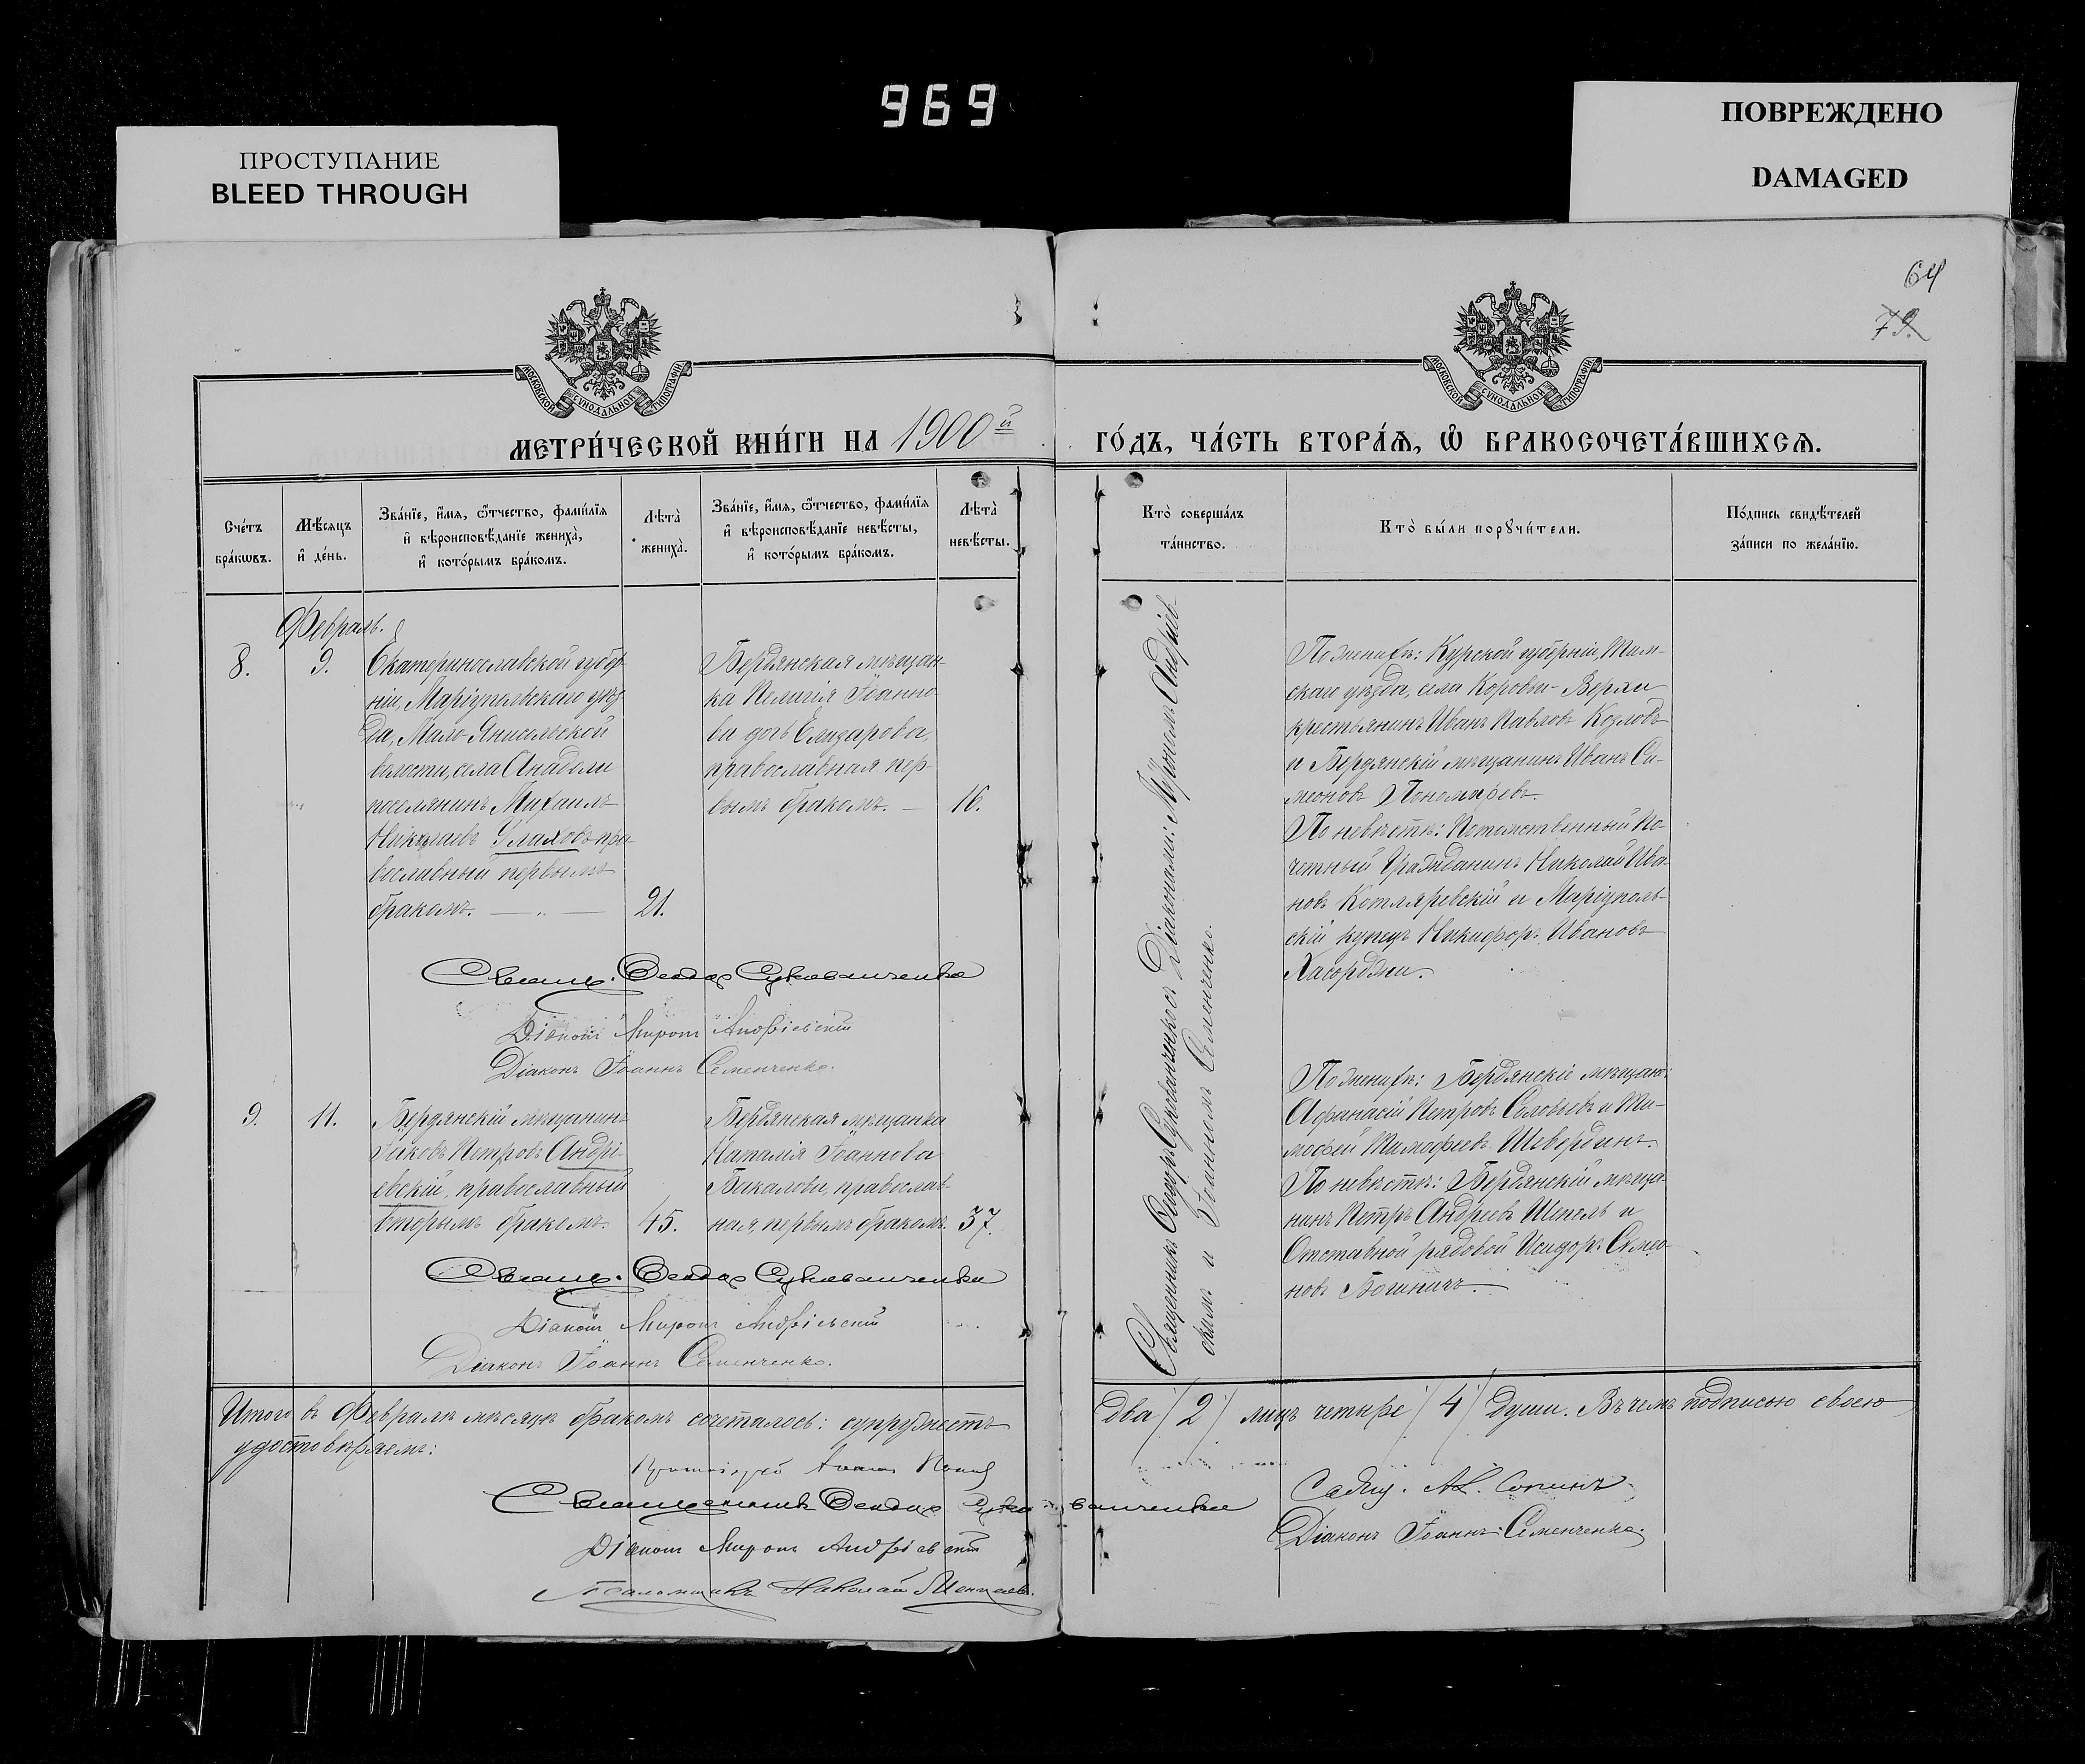 969
ПРОСТУПАНИЕ
BLEED THROUGH
ПОВРЕЖДЕНО
DAMAGED
64
79.
МОСКОВСКОЙ СѴНОДАЛЬНОЙ ТИПОГРАФІИ
МОСКОВСКОЙ СѴНОДАЛЬНОЙ ТИПОГРАФІИ
МЕТРИ́ЧЕСКОЙ КНИ́ГИ НА 1900й ГО́ДЪ, ЧА́СТЬ ВТОРА́Ѧ, Ѽ БРАКОСОЧЕТА́ВШИХСѦ.
Сче́тъ
бра́кωвъ.
Мѣ́сяцъ
и҆ де́нь.
Зва́нїе, и҆́мѧ, ѿ́чество, фамѝлїѧ
и҆ вѣроисповѣ́данїе жениха̀,
и҆ кото́рымъ бра́комъ.
Лѣта̀
жениха̀.
Зва́нїе, и҆́мѧ, ѿ́чество, фамѝлїѧ
и҆ вѣроисповѣ́данїе невѣ́сты,
и҆ кото́рымъ бра́комъ.
Лѣта̀
невѣ́сты.
Кто̀ соверша́лъ
та́инство.
Кто̀ бы́ли порꙋчи́тели.
По́дпись свидѣ́телей
за́писи по жела́нїю.
Февраль.
8.
9.
Екатеринославской губер-
ніи, Маріупольскаго уѣз-
да, Мало-Янисольской
волости, села Анадоли
поселянинъ Михаилъ
Николаевъ Улаховъ пра-
вославный первымъ
бракомъ. — „ —
21.
Бердянская мѣщан-
ка Пелагія Іоанно-
ва дочь Елизарова,
православная пер-
вымъ бракомъ. —
16.
Священникъ Ѳеодоръ Сукованченко съ Діаконами: Мѵрономъ Андріев-
скимъ и Іоанномъ Семенченко.
По женихѣ: Курской губерніи, Тим-
скаго уѣзда, села Коровьи-Верхи
крестьянинъ Иванъ Павловъ Козловъ
и Бердянскій мѣщанинъ Иванъ Си-
меоновъ Пономаревъ.
По невѣстѣ: Потомственный По-
четный Гражданинъ Николай Ива-
новъ Котляревскій и Маріуполь-
скій купецъ Никифоръ Ивановъ
Хаборджи.
Священ. Ѳеодоръ Сукованченко
Діаконъ Миронъ Андріевскій
Діаконъ Іоаннъ Семенченко.
9.
11.
Бердянскій мѣщанинъ
Іаковъ Петровъ Андрі-
евскій, православный
вторымъ бракомъ.
45.
Бердянская мѣщанка
Наталія Іоаннова
Бакалова, православ-
ная, первымъ бракомъ.
37.
По женихѣ: Бердянскіе мѣщане:
Афанасій Петровъ Соловьевъ и Ти-
мофей Тимофеевъ Шевердинъ.
По невѣстѣ: Бердянскій мѣща-
нинъ Петръ Андреевъ Шепель и
Отставной рядовой Исидоръ Симео-
новъ Богиничъ.
Священ. Ѳеодоръ Сукованченко
Діаконъ Миронъ Андріевскій
Діаконъ Іоаннъ Семенченко.
Итого въ Февралѣ мѣсяцѣ бракомъ сочеталось: супружествъ два /2/ лицъ четыре /4/ души. Въ чемъ подписью своею
удостовѣряемъ:
Протоіерей
Священникъ Ѳеодоръ Сукованченко
Діаконъ Миронъ Андріевскій
Діаконъ Іоаннъ Семенченко.
Псаломщикъ Николай